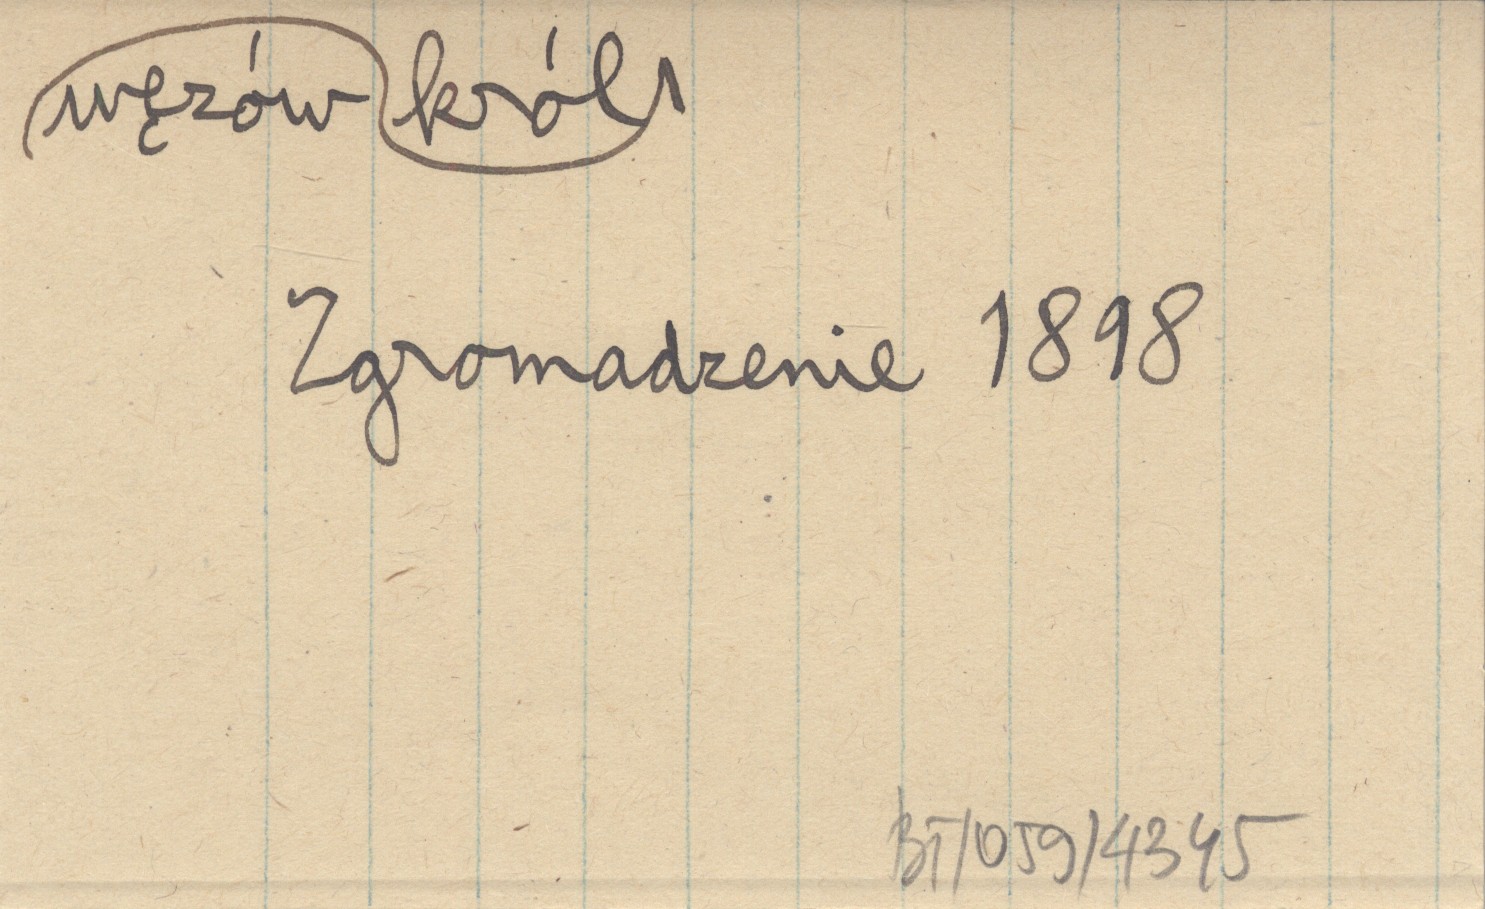 węzów król
Zgromadzenie 1898
BT/059/4345